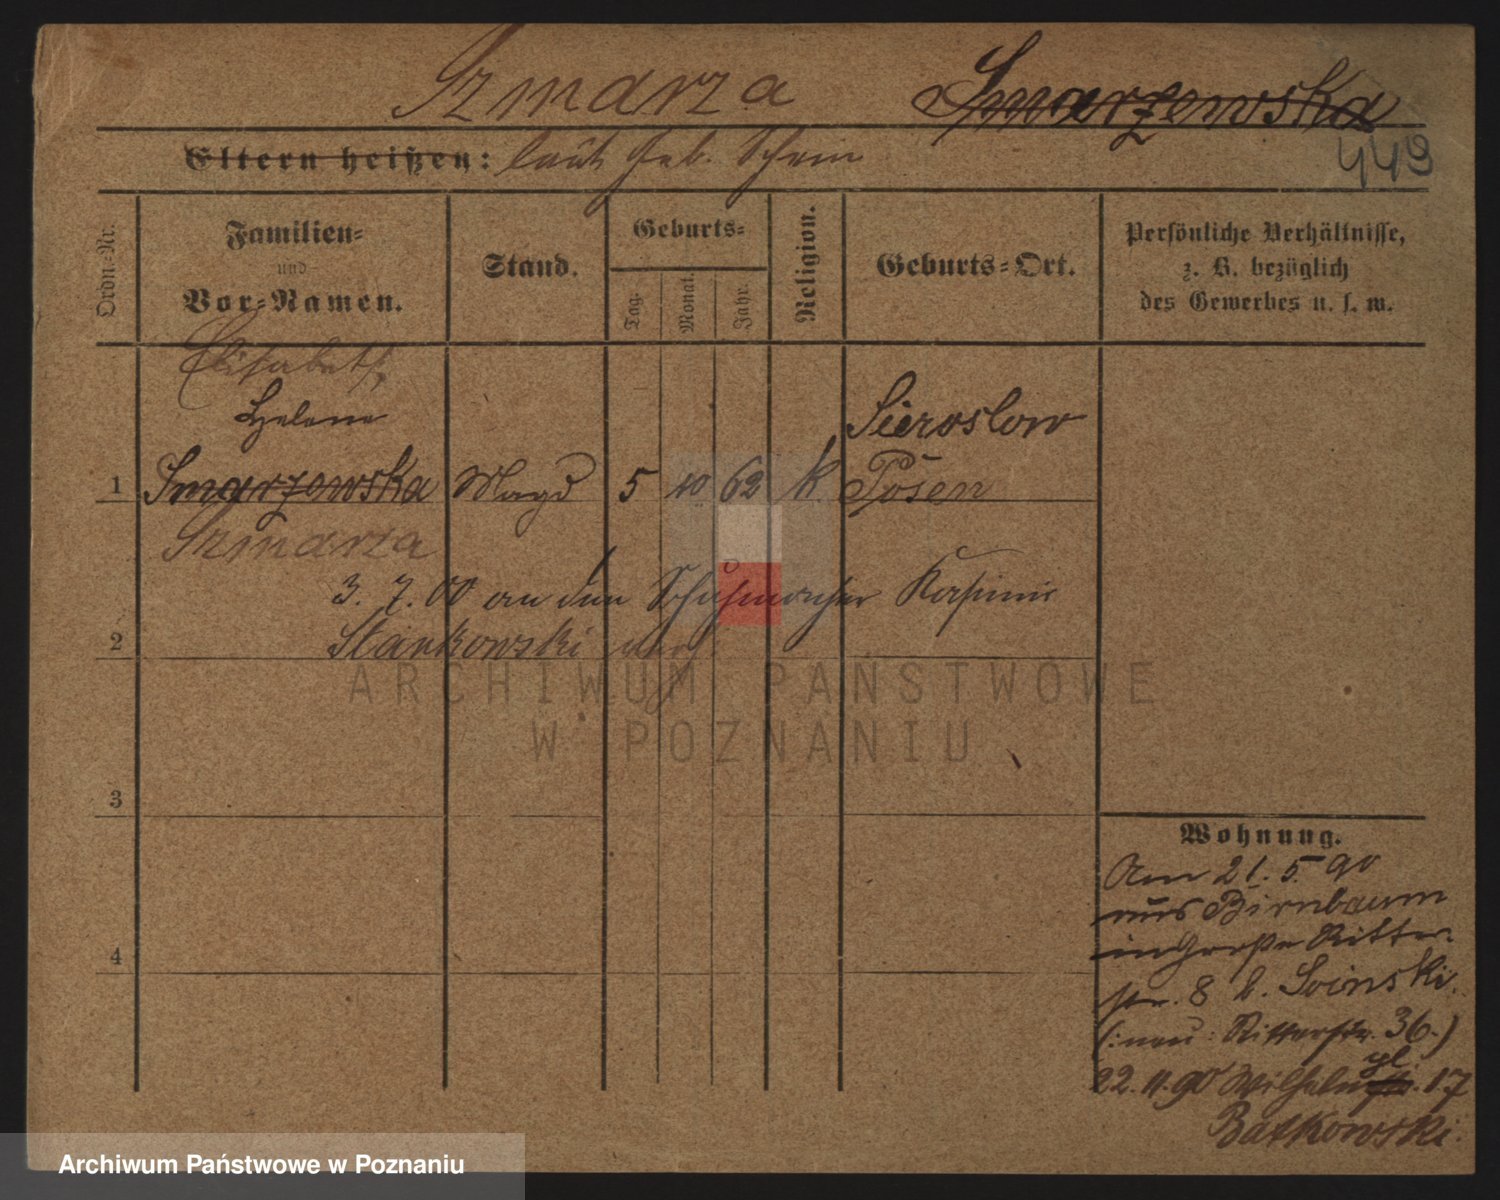 Szmarza Smarzewska
Eltern heißen: laut Geb. Schein
449
Ordn.-Nr.
Familien-
und
Vor-Namen.
Stand.
Geburts-
Tag.
Monat.
Jahr.
Religion.
Geburts-Ort.
Persönliche Verhältnisse,
z. B. bezüglich
des Gewerbes u. s. w.
Elisabeth,
Helene
Sieroslow
1 Smarzewska Magd 5 10 62 k Posen
Szmarza
3. 7. 00 an den Schuhmacher Kasimir
2 Stankowski verh.
3
4
Wohnung.
Am 21. 5. 90
aus Birnbaum
in Große Ritter-
str. 8 b. Soinski.
(: neu: Ritterstr. 36.)
22. 11. 90 Wilhelmpl. 17
Batkowski.
ARCHIWUM PAŃSTWOWE
W POZNANIU
Archiwum Państwowe w Poznaniu